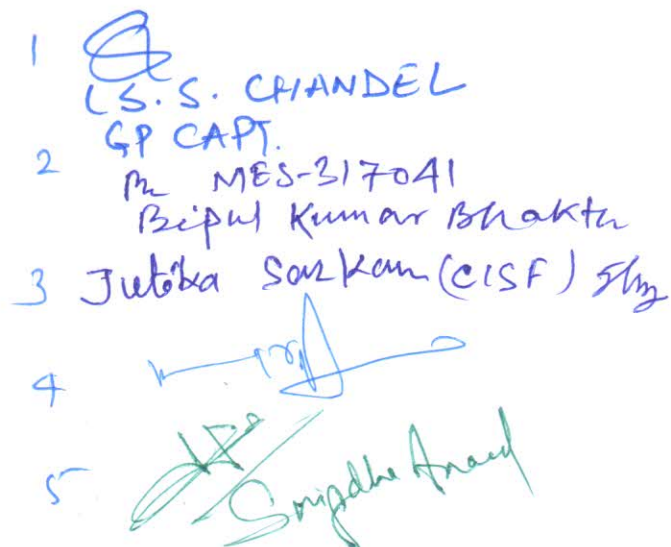 1
(S.S. CHANDEL
GP CAPT.
2 MES-317041
Bipul Kumar Bhakta
3 Jutika Sarkar (CISF)
4
5
Snigdha Anand